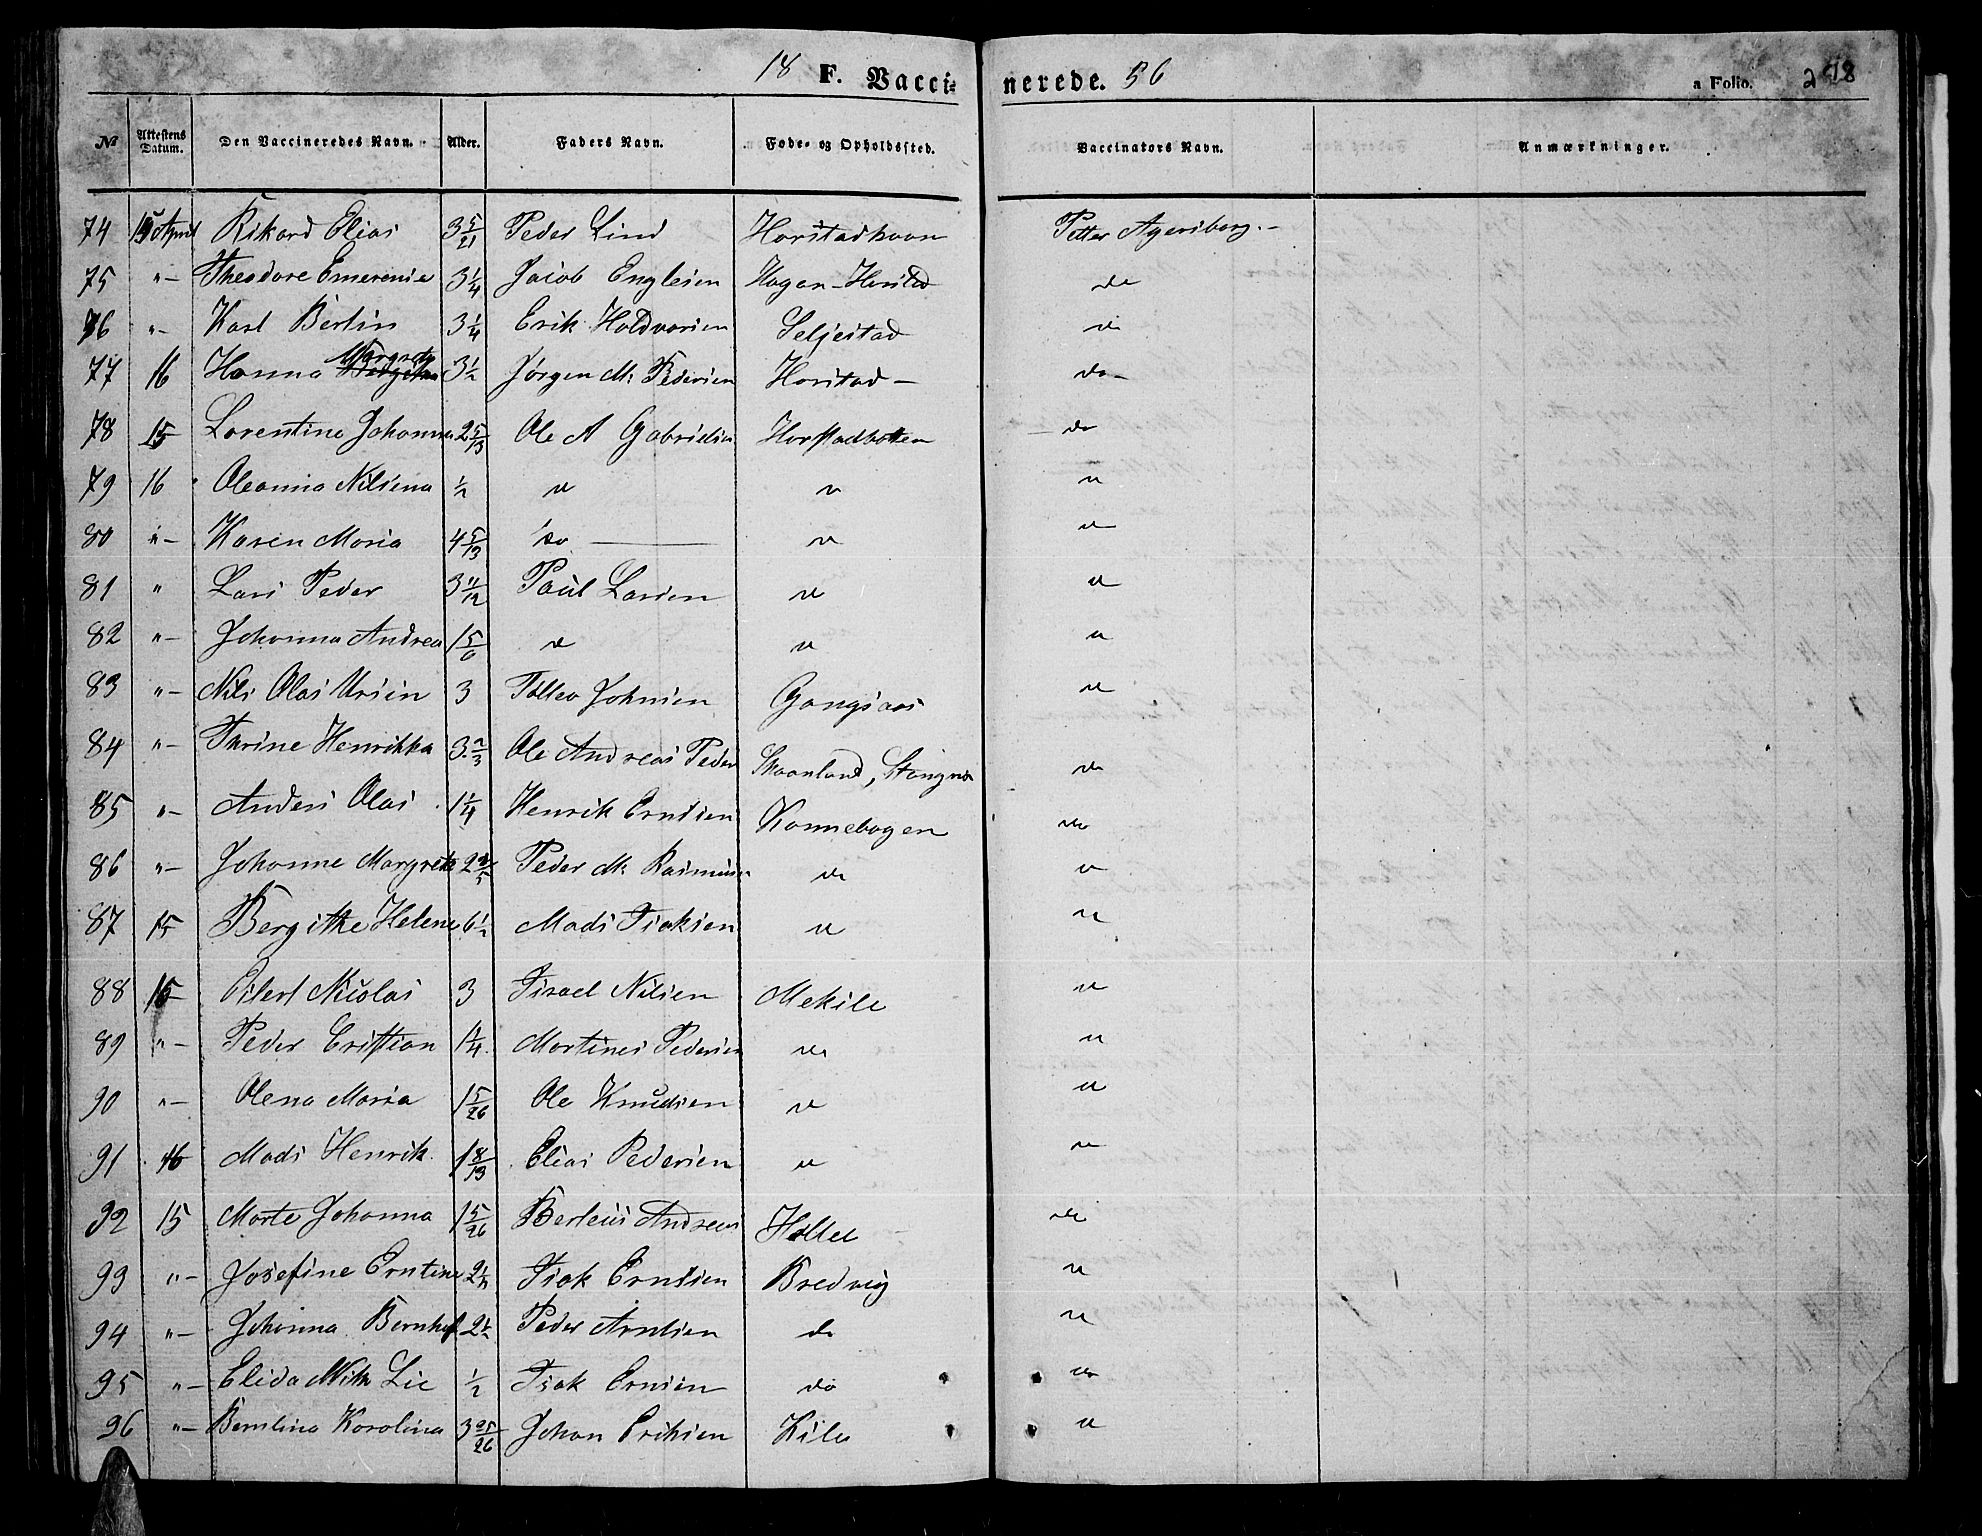 18 F. Vacci- nerede. 56 a Folio. 298
No Attestens Datum. Den Vaccineredes Navn. Alder. Faders Navn. Føde- og Opholdssted. Vaccinators Navn. Anmærkninger.
74 15 April Rikard Elias 3 5/21 Peder Lind Harstadhavn Petter Agersborg.-
75 "- Theodore Emerensie 3 1/4 Jacob Englesen Hagan-Harstad do
76 "- Karl Bertin 3 1/4 Erik Haldvorsen Seljestad do
77 16 Hanna Margrete 3 1/2 Jørgen M. Pedersen Harstad- do-
78 15 Lorentine Johanna 2 5/13 Ole A Gabrielsen Harstadbotten do
79 16 Oleanna Nilsina 1/2 " " "
80 "- Karen Maria 4 5/13 do " "
81 " Lars Peder 3 11/12 Paul Larsen " "
82 "- Johanna Andrea 1 5/6 " " "
83 "- Nils Olai Ursin 3 Tollev Johnsen Gangsaas "
84 "- Thrine Henrikka 3 2/3 Ole Andreas Peder Skaanland, Stangnes do
85 "- Anders Olai 1 1/4 Henrik Erntsen Kannebogen do
86 "- Johanne Margrete 2 2/5 Peder M. Rasmussen do "
87 15 Bergitke Helene 6 1/2 Mads Isaksen " "
88 15 Eilert Nicolai 3 Israel Nilsen Mekile "
89 "- Peder Cristian 1 1/4 Martines Pedersen do "
90 "- Olena Maria 1 5/26 Ole Knudsen " "
91 16 Mads Henrik 1 8/13 Elias Pedersen " "
92 15 Marte Johanna 1 5/26 Berteus Andreas Holtet do
93 "- Josefine Erntine 2 1/2 Isak Erntsen Bredvig "
94 "- Johanna Bernhof 2 1/2 Peder Arntsen do "
95 "- Elida 1/2 Isak Ernsen do "
96 "- Berntina Karolina 3 25/26 Johan Eriksen Kila "